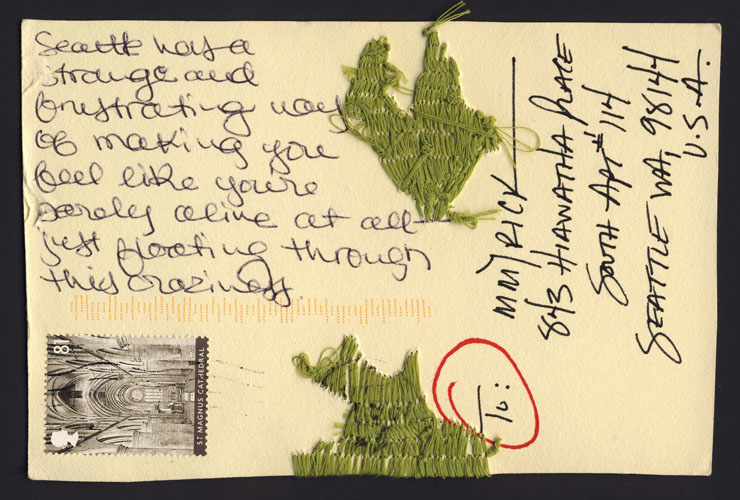 Seattle has a
strange and
frustrating way
of making you
feel like you're
barely alive at all
just floating through
this craziness.
To:
MMYRICK
843 HIAWATHA PLACE
SOUTH APT #114
SEATTLE WA, 98144
U.S.A.
81
ST MAGNUS CATHEDRAL